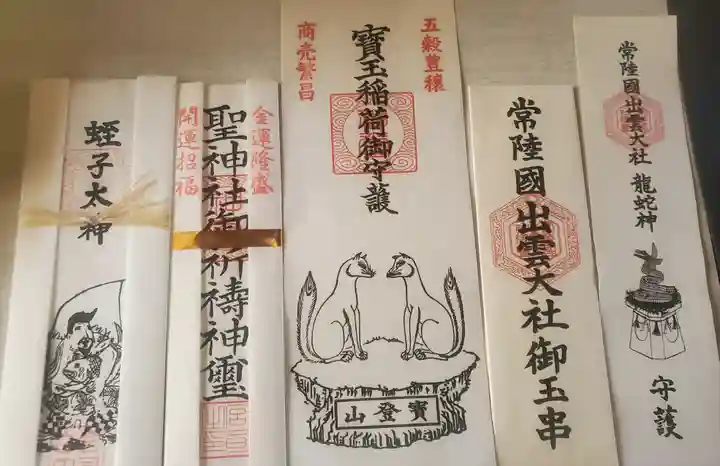 蛭子太神
金運隆盛
聖神社御祈禱神璽
開運招福
五穀豊穣
寶玉稲荷御守護
商売繁昌
寶登山
常陸國出雲大社御玉串
常陸國出雲大社
龍蛇神
守護